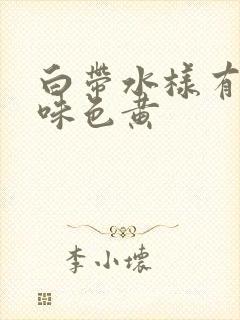 白带水樣有
味色黄
李小壞